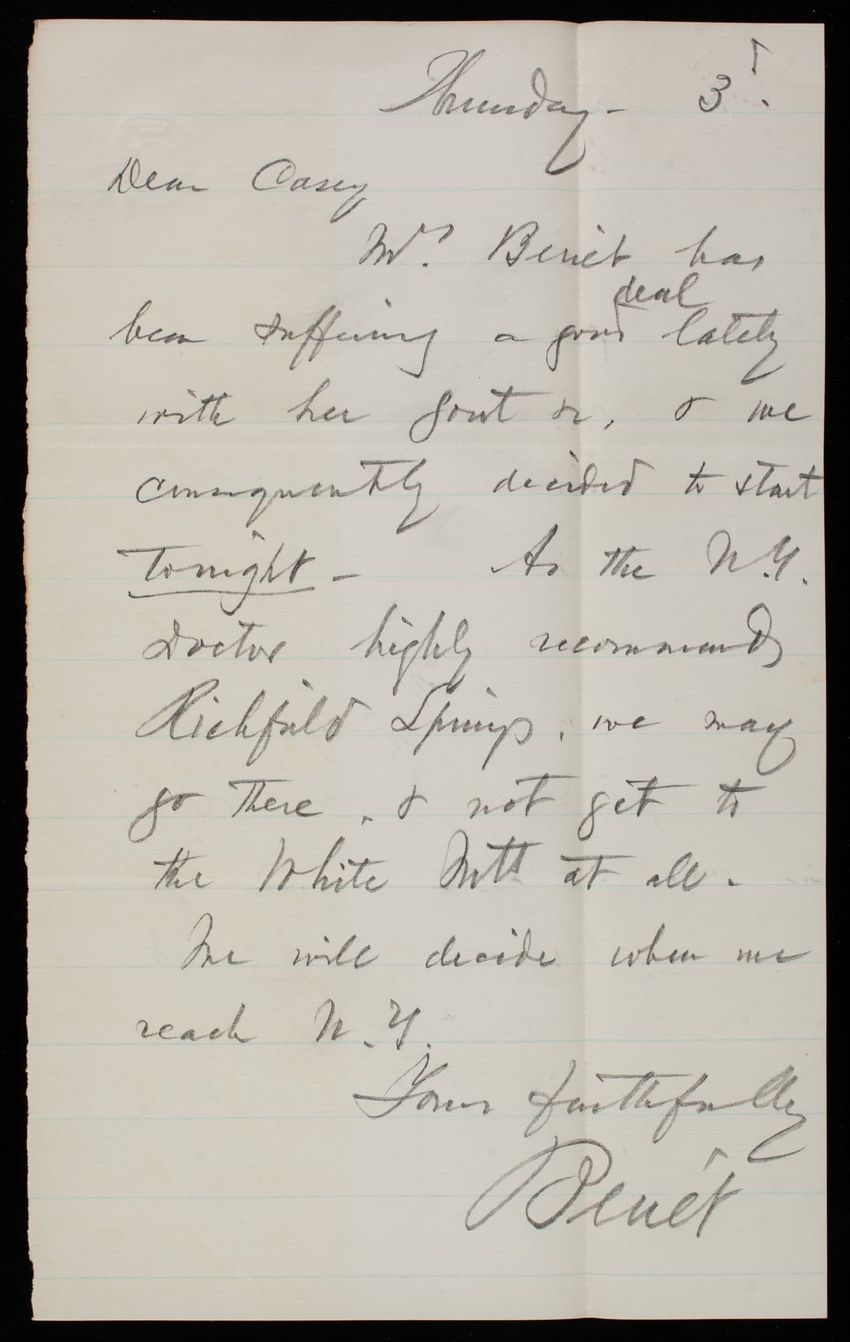 Thursday - 3ʳ.
Dear Casey
Mrs. Benét has
deal
been suffering a good lately
with her gout &c, & we
consequently decided to start
tonight - As the N.Y.
Doctor highly recommends
Richfield Springs, we may
go there, & not get to
the White Mtˢ at all.
We will decide when we
reach N.Y.
Yours faithfully
Benét